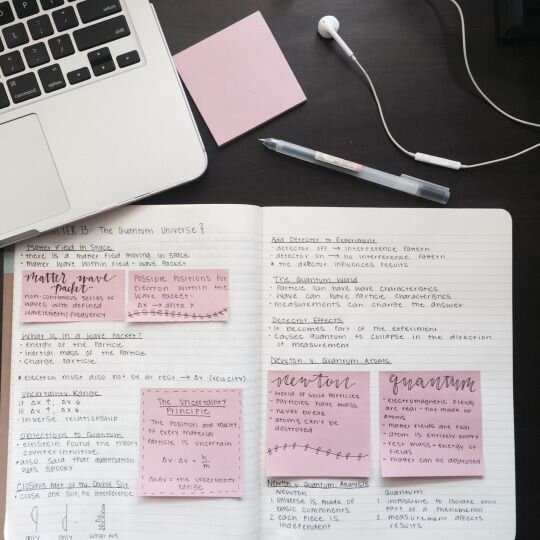 13: The Quantum Universe
Matter Field In Space
• there is a matter field moving in space
• matter wave field = wave packet
matter wave
packet
non-continuous series of
waves with defined
wavelength/frequency
Possible positions for
electron within the
wave packet-
Δx → delta x
What is in a Wave Packet?
• energy of the particle
• inertial mass of the particle
• charge particle
* electron must also not be at rest → Δv (velocity)
Uncertainty Range
if Δx ↑, Δv ↓
if Δx ↓, Δv ↑
• inverse relationship
The Uncertainty
Principle
The position and
of every material
particle is uncertain
Δx · Δv = h/m
ΔxΔv = the uncertainty
range
Objections to Quantum
• einstein found the theory
counterintuitive
• also said that quantization
was spooky
Closing part of the Double Slit
• close one slit, no interference
only
only
what we
Add Detector to Experiment
• detector off → interference pattern
• detector on → no interference pattern
* the detector influences results
The Quantum World
• particle can have wave characteristics
• wave can have particle characteristics
• measurements can change the answer
Detector Effects
• it becomes part of the experiment
• causes quantum to collapse in the direction
of measurement
Newton v. Quantum Atoms
newton
• world of solid particles
• particles have mass
• never break
• atoms can't be
destroyed
quantum
• electromagnetic fields
are real - not made of
atoms
• matter fields are real
• atom is entirely empty
• rest mass = energy of
fields
• matter can be destroyed
Newton v. Quantum Analysis
Newton
1. universe is made of
basic components
2. each piece is
independent
Quantum
1. impossible to isolate only
part of a phenomenon
2. measurement affects
results
command
option
control
return
shift